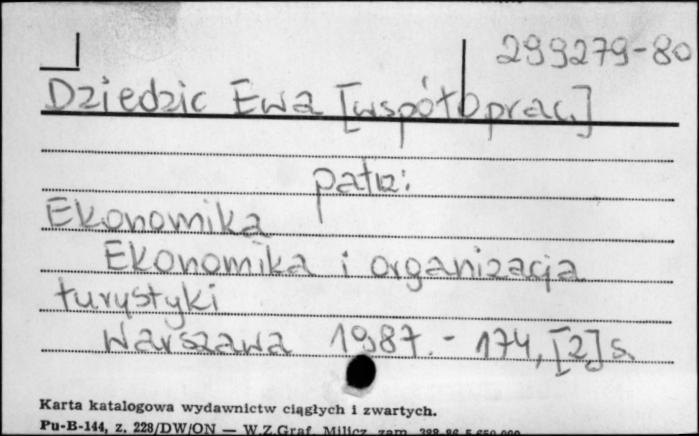 299279-80
Dziedzic Ewa [współoprac.]
patrz:
Ekonomika
Ekonomika i organizacja
turystyki
Warszawa 1987. - 174, [2] s.
Karta katalogowa wydawnictw ciągłych i zwartych.
Pu-B-144, z. 228/DW/ON — W.Z.Graf. Milicz zam.